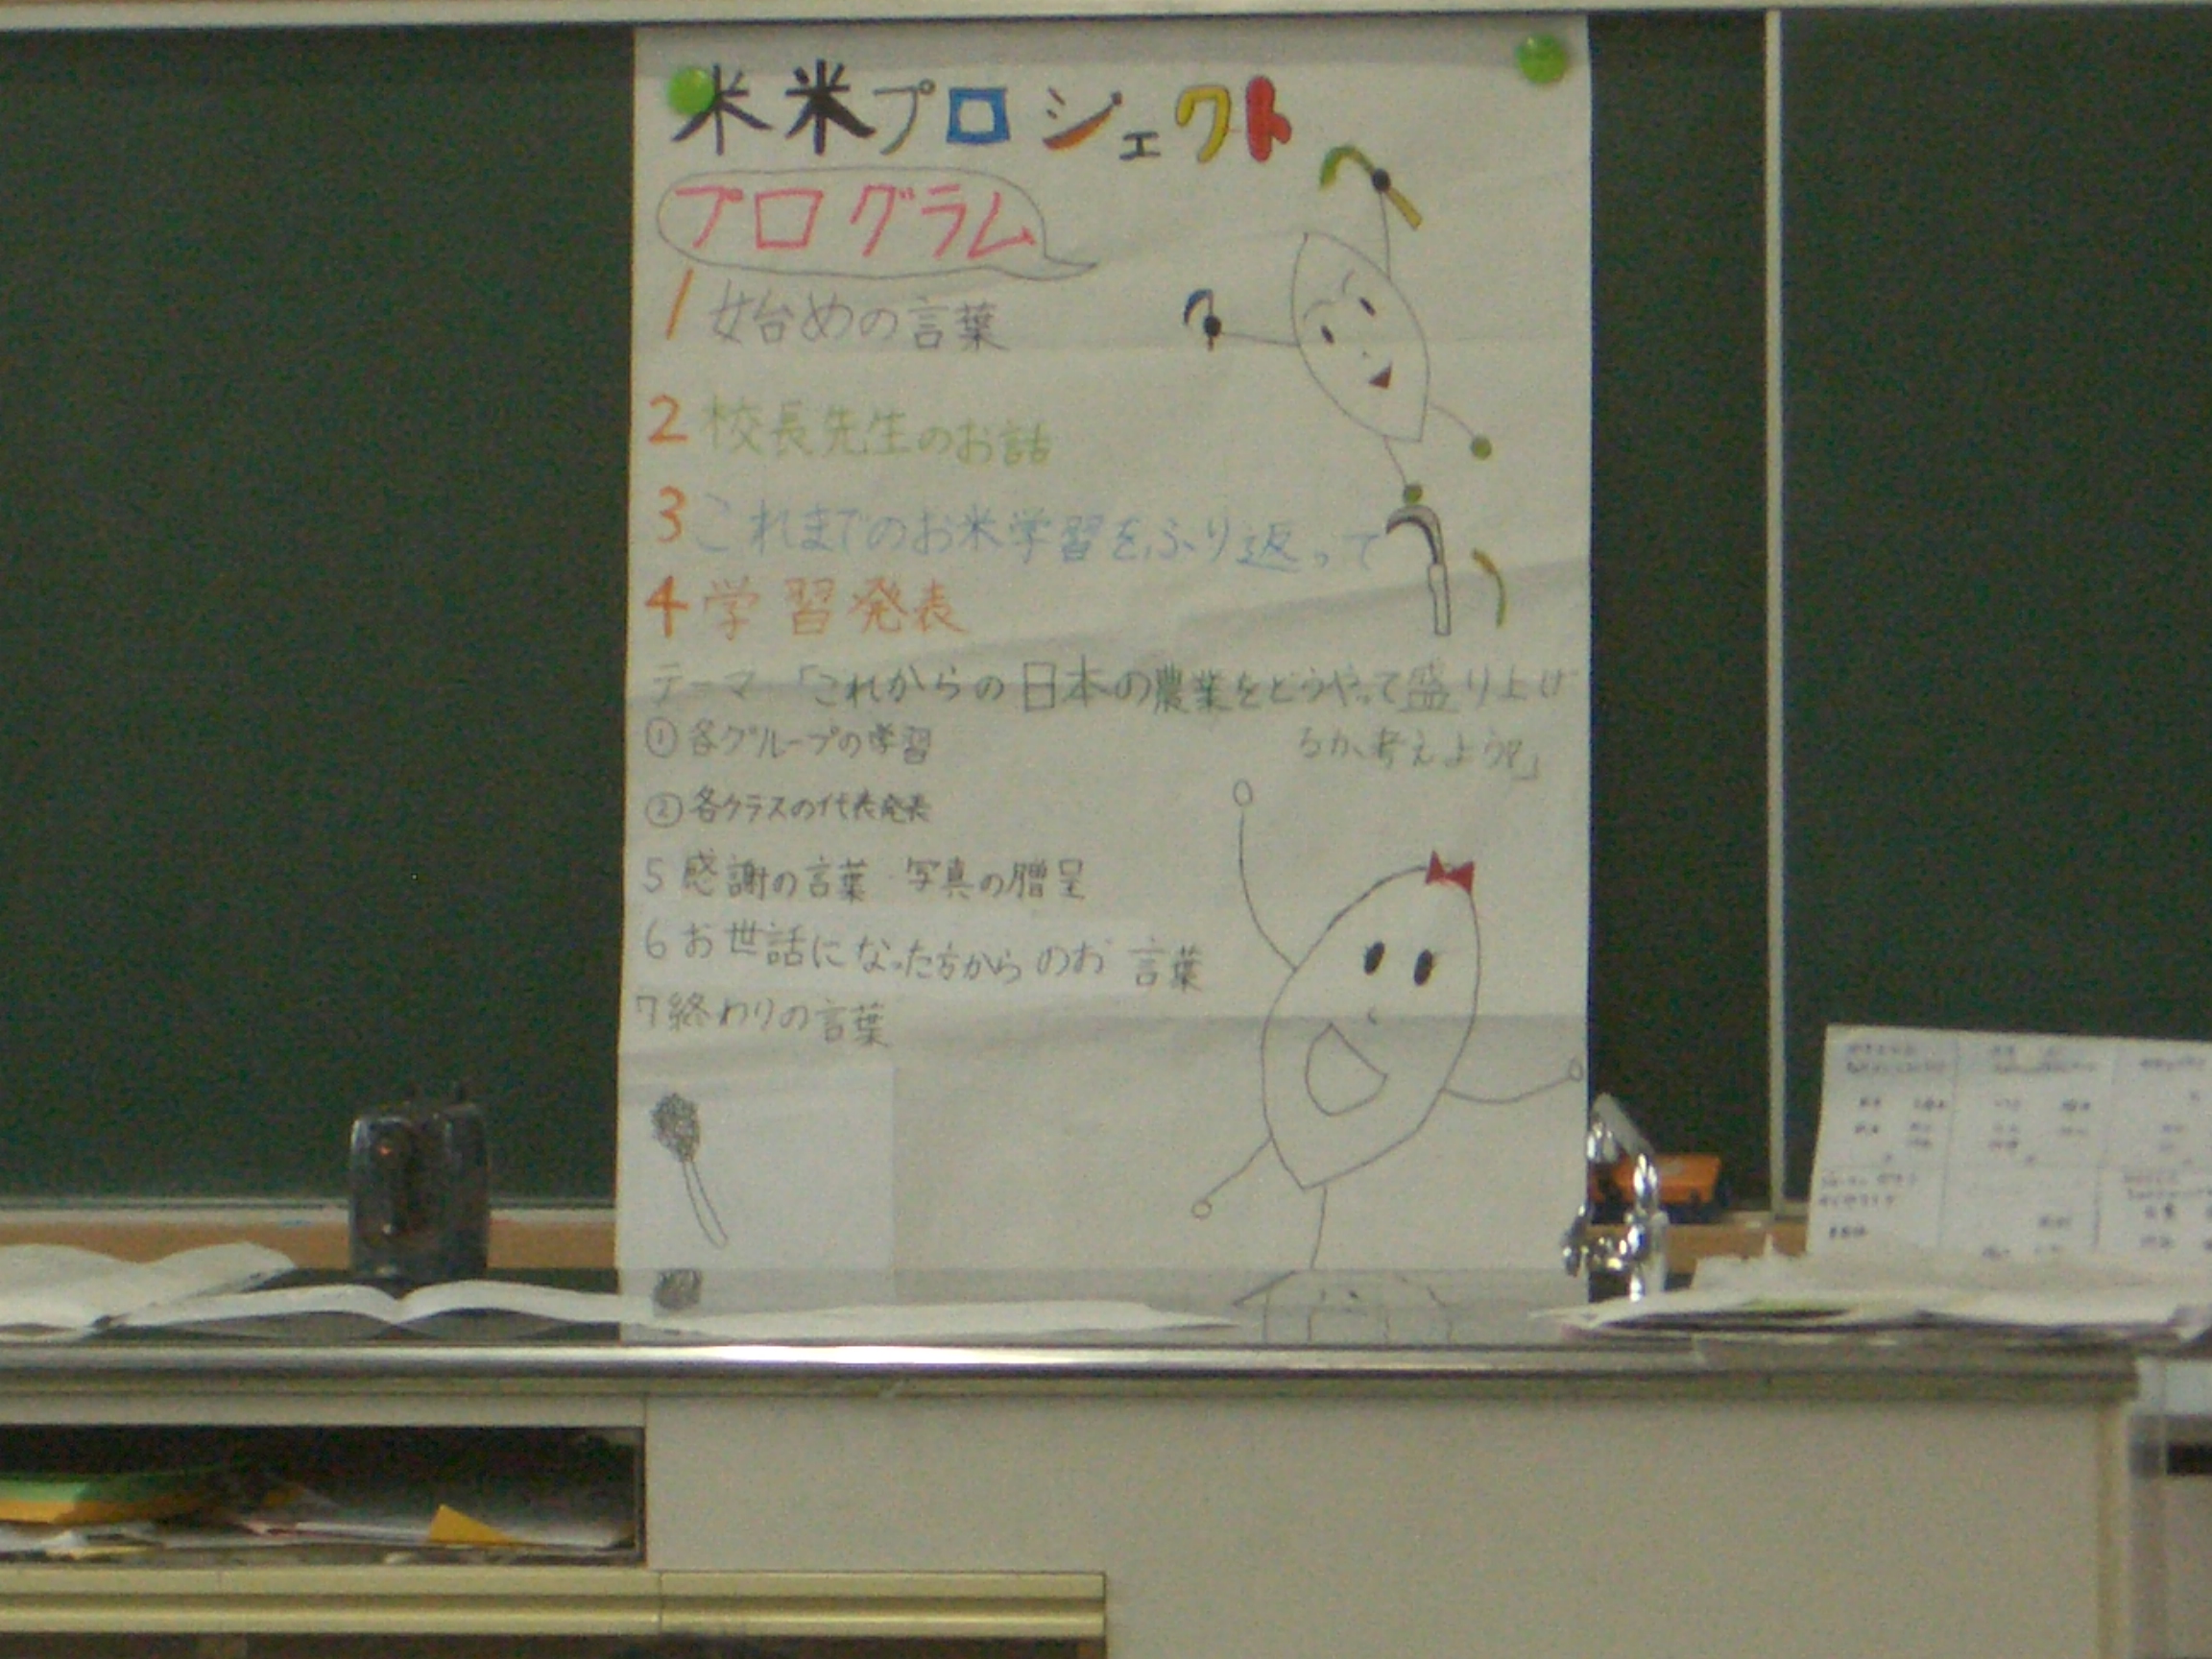 米米プロジェクト
プログラム
1 始めの言葉
2 校長先生のお話
3 これまでのお米学習をふり返って
4 学習発表
テーマ「これからの日本の農業をどうやって盛り上げ
るか考えよう!!」
① 各グループの学習
② 各クラスの代表発表
5 感謝の言葉 写真の贈呈
6 お世話になった方からのお言葉
7 終わりの言葉